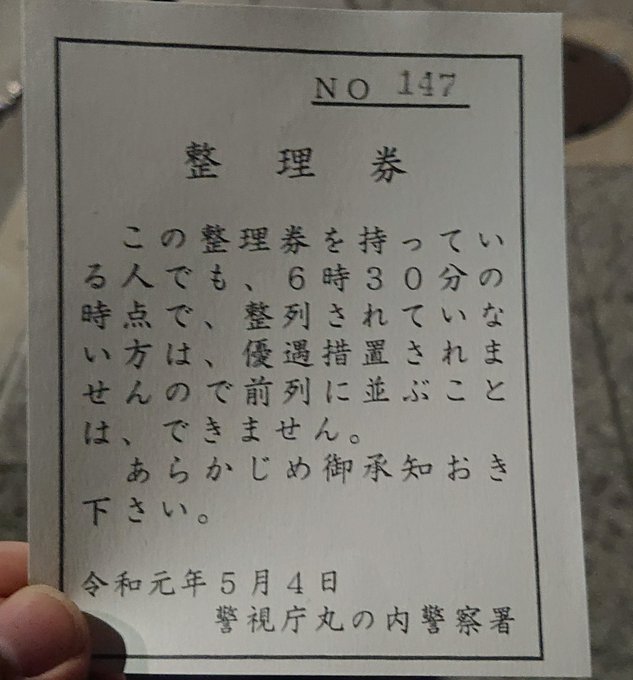 NO 147
整理券
この整理券を持ってい
る人でも、６時３０分の
時点で、整列されていな
い方は、優遇措置されま
せんので前列に並ぶこと
は、できません。
あらかじめ御承知おき
下さい。
令和元年５月４日
警視庁丸の内警察署